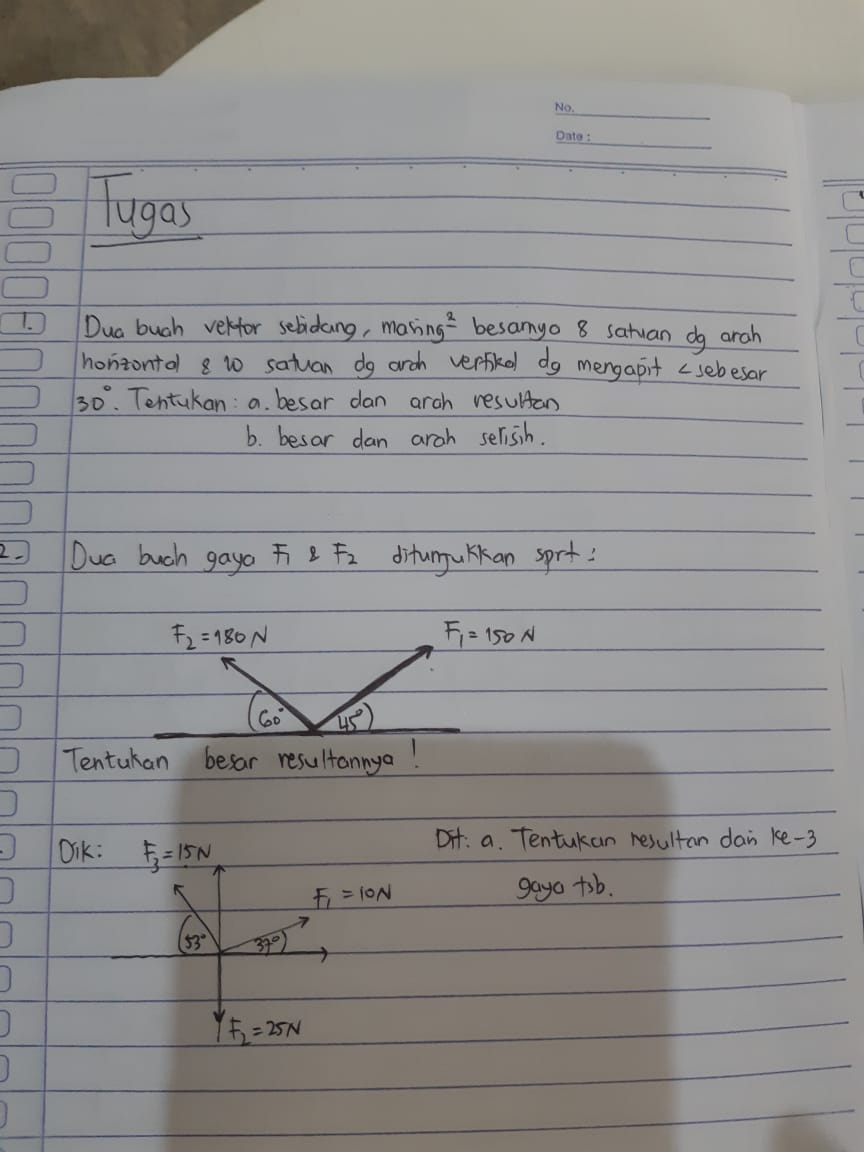 No.
Date :
Tugas
1. Dua buah vektor sebidang, masing² besarnya 8 satuan dg arah
horizontal & 10 satuan dg arah vertikal dg mengapit < sebesar
30°. Tentukan : a. besar dan arah resultan
b. besar dan arah selisih.
2. Dua buah gaya F₁ & F₂ ditunjukkan sprt :
F₂ = 180 N
F₁ = 150 N
60°
45°
Tentukan besar resultannya !
Dik: F₃ = 15N
Dit: a. Tentukan resultan dari ke-3
gaya tsb.
F₁ = 10N
53°
37°
F₂ = 25N